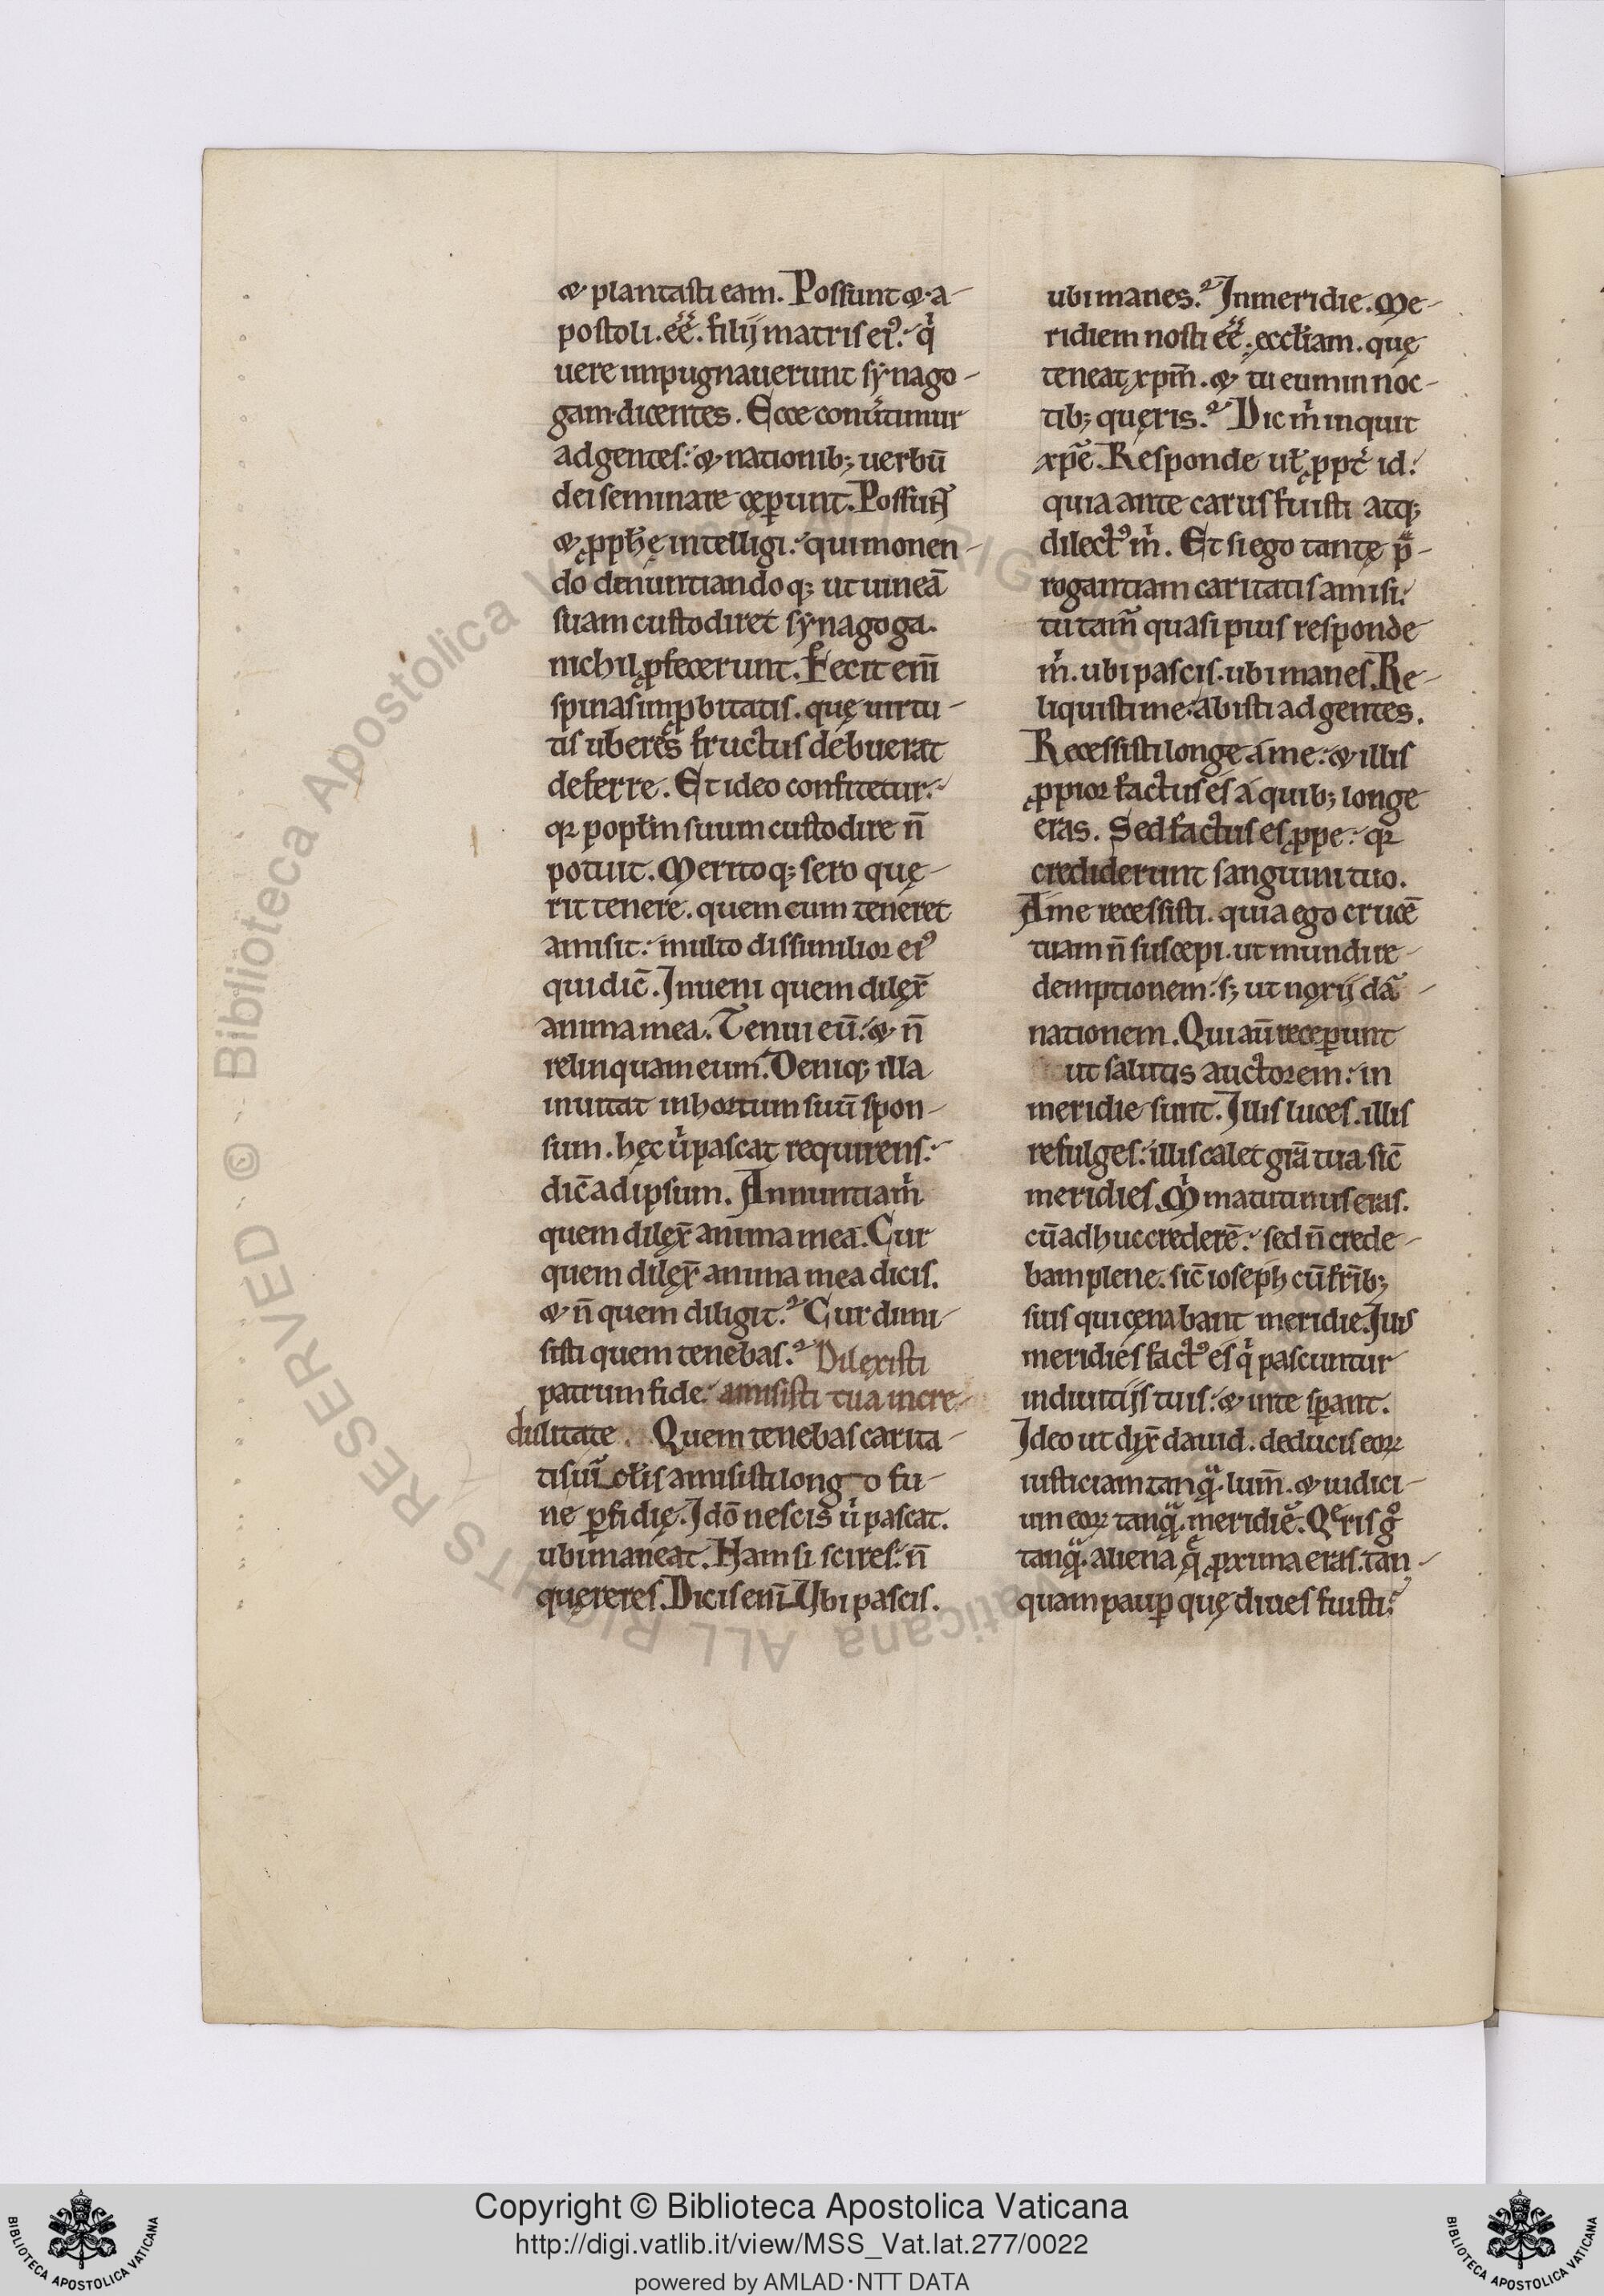 & plantasti eam. Possunt & a-
postoli. eē. filij matris ei⁹. qͥ
uere impugnauerunt synago-
gam dicentes. Ecce conũtimur
ad gentes: & nationib; uerbū
dei seminare cęꝑunt. Possunt
& ꝓph̄ę intelligi. qui monen-
do denuntiandoq; ut uineā
suam custodiret synagoga.
nichil ꝓfecerunt. Fecit eni̅
spinas imꝓbitatis. quę uirtu-
tis uberes fructus debuerat
deferre. Et ideo confitetur.
qꝛ popl̄m suum custodire n̄
potuit. Meritoq; sero quę-
rit tenere. quem cum teneret
amisit: multo dissimilior ei⁹
qui dic̄. Inueni quem dilex̄
anima mea. Tenui eū: & n̄
relinquam eum. Deniq; illa
inuitat in hortum suū spon-
sum. hęc uͥ pascat requirens.
dic̄ ad ipsum. Annuntia mͥ
quem dilex̄ anima mea. Cur
quem dilex̄ anima mea dicis.
& n̄ quem diligit. Cur dimi-
sisti quem tenebas. Dilexisti
patrum fide. amisisti tua incre-
dulitate. Quem tenebas carita-
tis amisisti long o fu-
ne ꝑfidię. Idō nescis uͥ pascat.
ubi maneat. Nam si scires: n̄
quęreres. Dicis eni̅. Ubi pascis.
ubi manes. In meridie. Me-
ridiem nosti eē. ęccl̄iam. quę
teneat xp̄m. & tu eum in noc-
tib; quęris. Dic mͥ inquit
xp̄e. Responde ul̄ ꝓpt̄ id.
quia ante carus fuisti atq;
dilect⁹ mͥ. Et si ego tantę pᷓ-
rogantiam caritatis amisi:
tu tam̄ quasi pius responde
mͥ. ubi pascis. ubi manes. Re-
liquisti me. abisti ad gentes.
Recessisti longe a me: & illis
ꝓpior factus es a quib; longe
eras. Sed factus es ꝓpe: qꝛ
crediderunt sanguini tuo.
A me recessisti. quia ego crucē
tuam n̄ suscepi. ut mundi re-
demptionem: s; ut noxij dā-
nationem. Qui aū receꝑunt
ut salutis auctorem: in
meridie sunt. Illis luces. illis
refulges: illis calet gr̄a tua sic̄
meridies. Mͥ matutinus eras.
cū adhuc crederē: sed n̄ crede-
bam plene. sic̄ ioseph cū fr̄ib;
suis qui cęnabant meridie. Iuis
meridies fact⁹ es qͥ pascuntur
in diuitijs tuis: & in te sꝑant.
Ideo ut dix̄ dauid. deducis eoꝝ
iusticiam tanqᷓ. lum̄. & iudici-
um eoꝝ tanqᷓ. meridiē. Qͤris gͦ
tanqᷓ. aliena qͣ ꝓxima eras. tan-
quam pauꝑ quę diues fuisti.
Copyright © Biblioteca Apostolica Vaticana
http://digi.vatlib.it/view/MSS_Vat.lat.277/0022
powered by AMLAD·NTT DATA
BIBLIOTECA APOSTOLICA VATICANA
BIBLIOTECA APOSTOLICA VATICANA
© Biblioteca Apostolica Vaticana ALL RIGHTS RESERVED